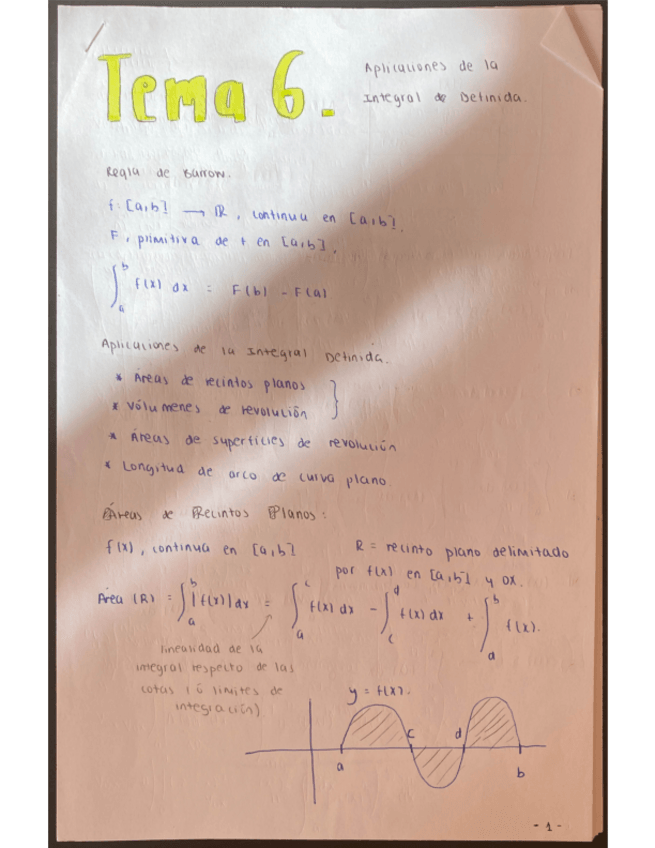 Tema 6.
Aplicaciones de la
Integral de Definida.
Regla de Barrow.
f: [a,b] → ℝ, continua en [a,b].
F, primitiva de f en [a,b].
∫_a^b f(x) dx = F(b) - F(a)
Aplicaciones de la Integral Definida.
* Áreas de recintos planos
* Volúmenes de revolución
* Áreas de superfícies de revolución
* Longitud de arco de curva plano
Áreas de Recintos Planos:
f(x), continua en [a,b]
R = recinto plano delimitado
por f(x) en [a,b] y OX.
Área (R) = ∫_a^b |f(x)| dx = ∫_a^c f(x) dx - ∫_c^d f(x) dx + ∫_d^b f(x).
linealidad de la
integral respecto de las
cotas (ó límites de
integración)
y = f(x).
a c d b
- 1 -